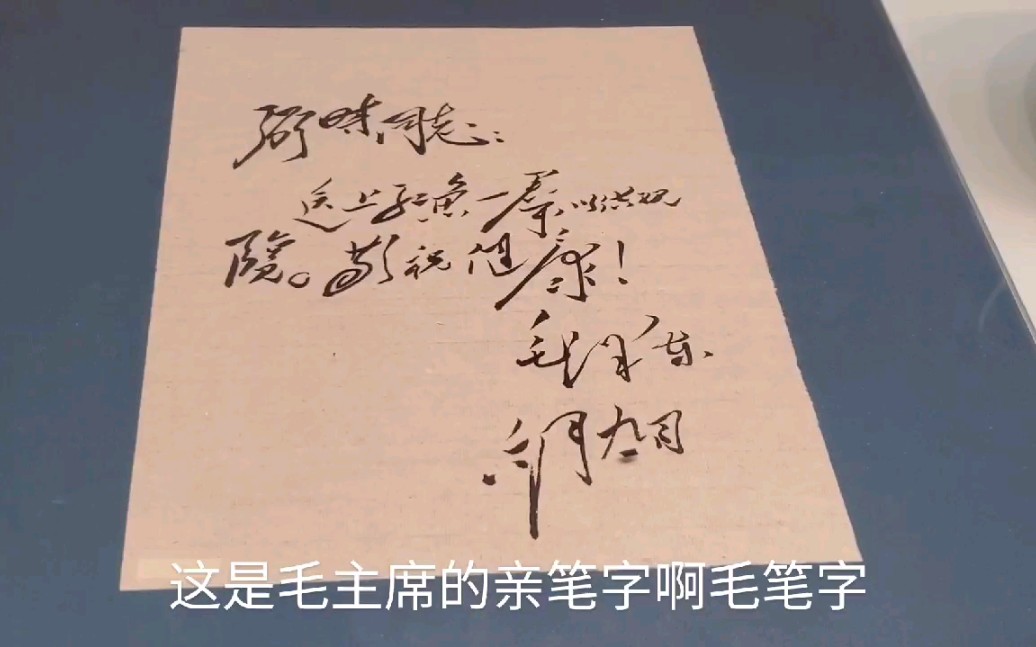 弼时同志：
送上红鱼一群以供观
览。敬祝健康！
毛泽东
六月九日
这是毛主席的亲笔字啊毛笔字